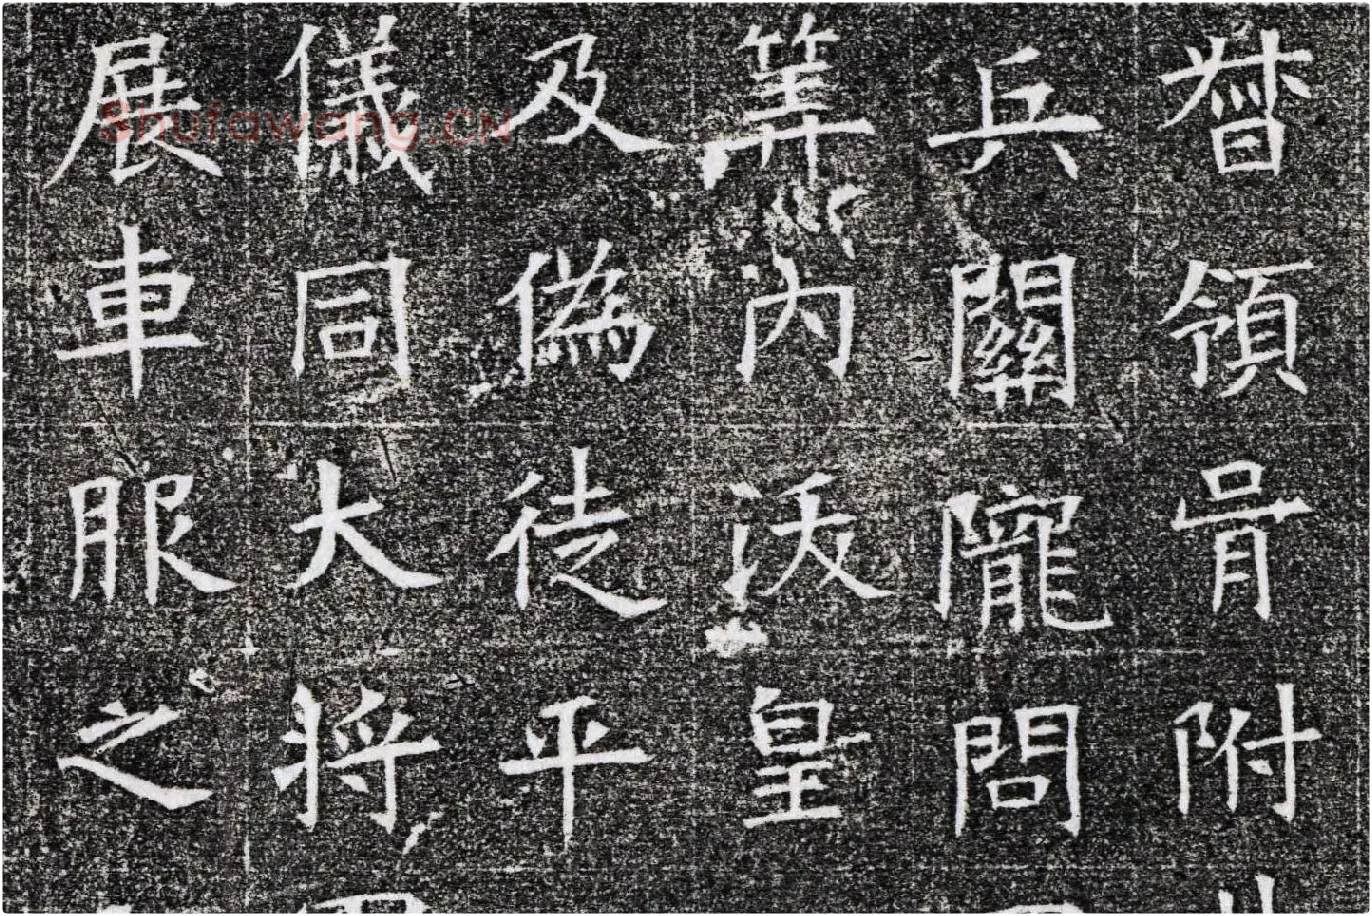 督領胥附
兵關隴問
筭内沷皇
及偽徒平
儀同大将
展車服之
Shufawang.CN